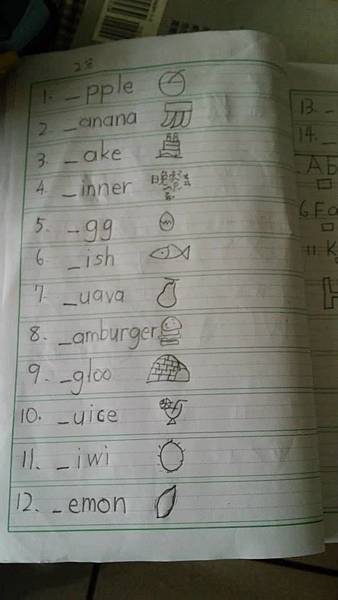 28
1. _pple
2. _anana
3. _ake
4. _inner 晚
5. _gg
6. _ish
7. _uava
8. _amburger
9. _gloo
10. _uice
11. _iwi
12. _emon
13. _
14. _
Ab
6. Fa
11. K